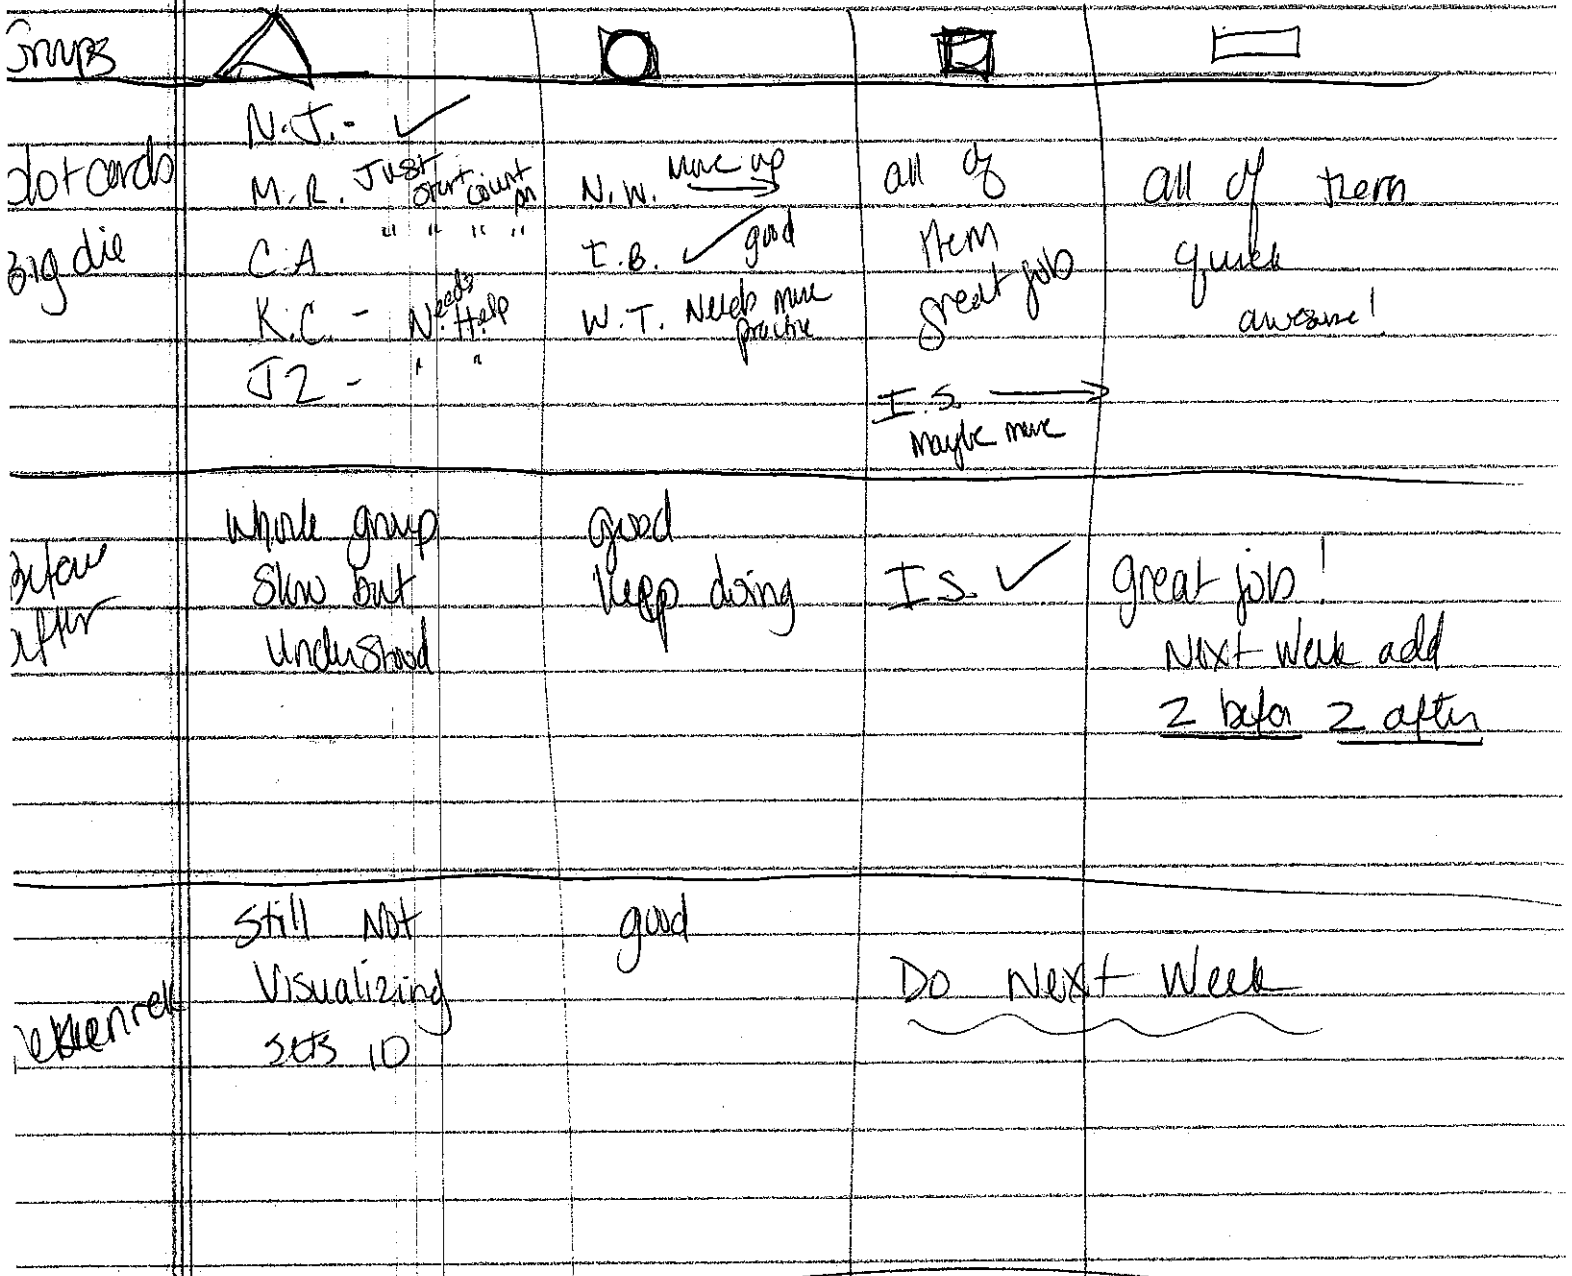 Groups
dot cards
big die
N.J. - ✓
M.R. Just start count on
C.A " " " "
K.C. - Needs Help
J2 - " "
N.W. Move up →
I.B. ✓ good
W.T. Needs more practice
all of
them
great job
I.S. →
Maybe move
all of them
quick
awesome!
Before
After
Whole group
Slow but
Understood
good
keep doing
I.S. ✓
great job!
Next Week add
2 befor 2 after
Still Not
Visualizing
sets 10
good
Do Next Week